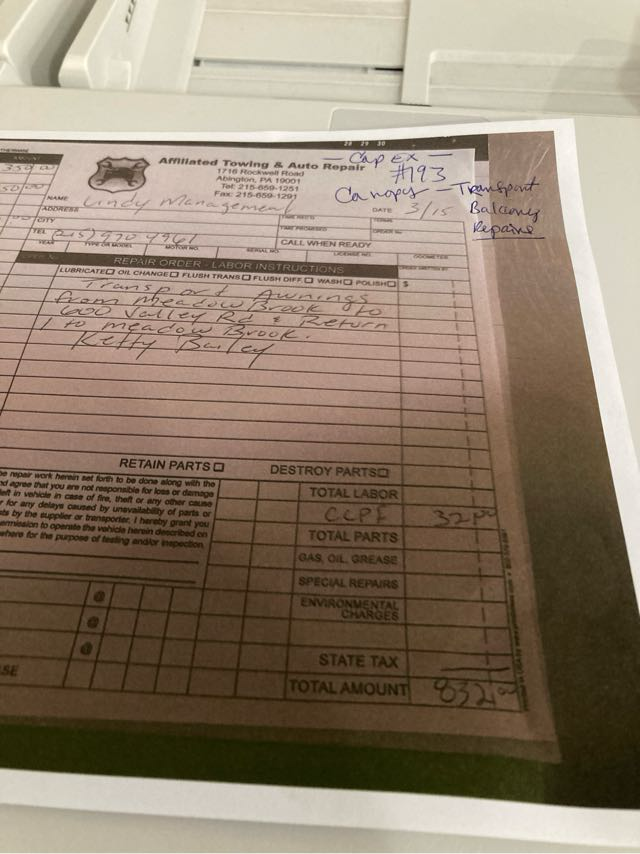 28 29 30
- Cap ex -
#193
Canopy - Transport
Balcony
Repairs
AMOUNT
350 00
50 00
Affiliated Towing & Auto Repair
1716 Rockwell Road
Abington, PA 19001
Tel: 215-659-1251
Fax: 215-659-1291
NAME Lindy Management
DATE 3/15
ADDRESS
TIME REC'D
TERMS
CITY
TIME PROMISED
ORDER No
TEL (215) 970 4961
CALL WHEN READY
YEAR TYPE OR MODEL MOTOR NO. SERIAL NO. LICENSE NO. ODOMETER
REPAIR ORDER - LABOR INSTRUCTIONS
LUBRICATE OIL CHANGE FLUSH TRANS FLUSH DIFF. WASH POLISH $
Transport Awnings
from Meadow Brook to
600 Valley Rd & Return
to meadow Brook.
Bailey
RETAIN PARTS DESTROY PARTS
be repair work herein set forth to be done along with the
nd agree that you are not responsible for loss or damage
left in vehicle in case of fire, theft or any other cause
r for any delays caused by unavailability of parts or
ts by the supplier or transporter, I hereby grant you
ermission to operate the vehicle herein described on
where for the purpose of testing and/or inspection.
TOTAL LABOR
32 00
TOTAL PARTS
GAS, OIL, GREASE
SPECIAL REPAIRS
@
ENVIRONMENTAL
CHARGES
@
@
STATE TAX
SE
TOTAL AMOUNT 832 00